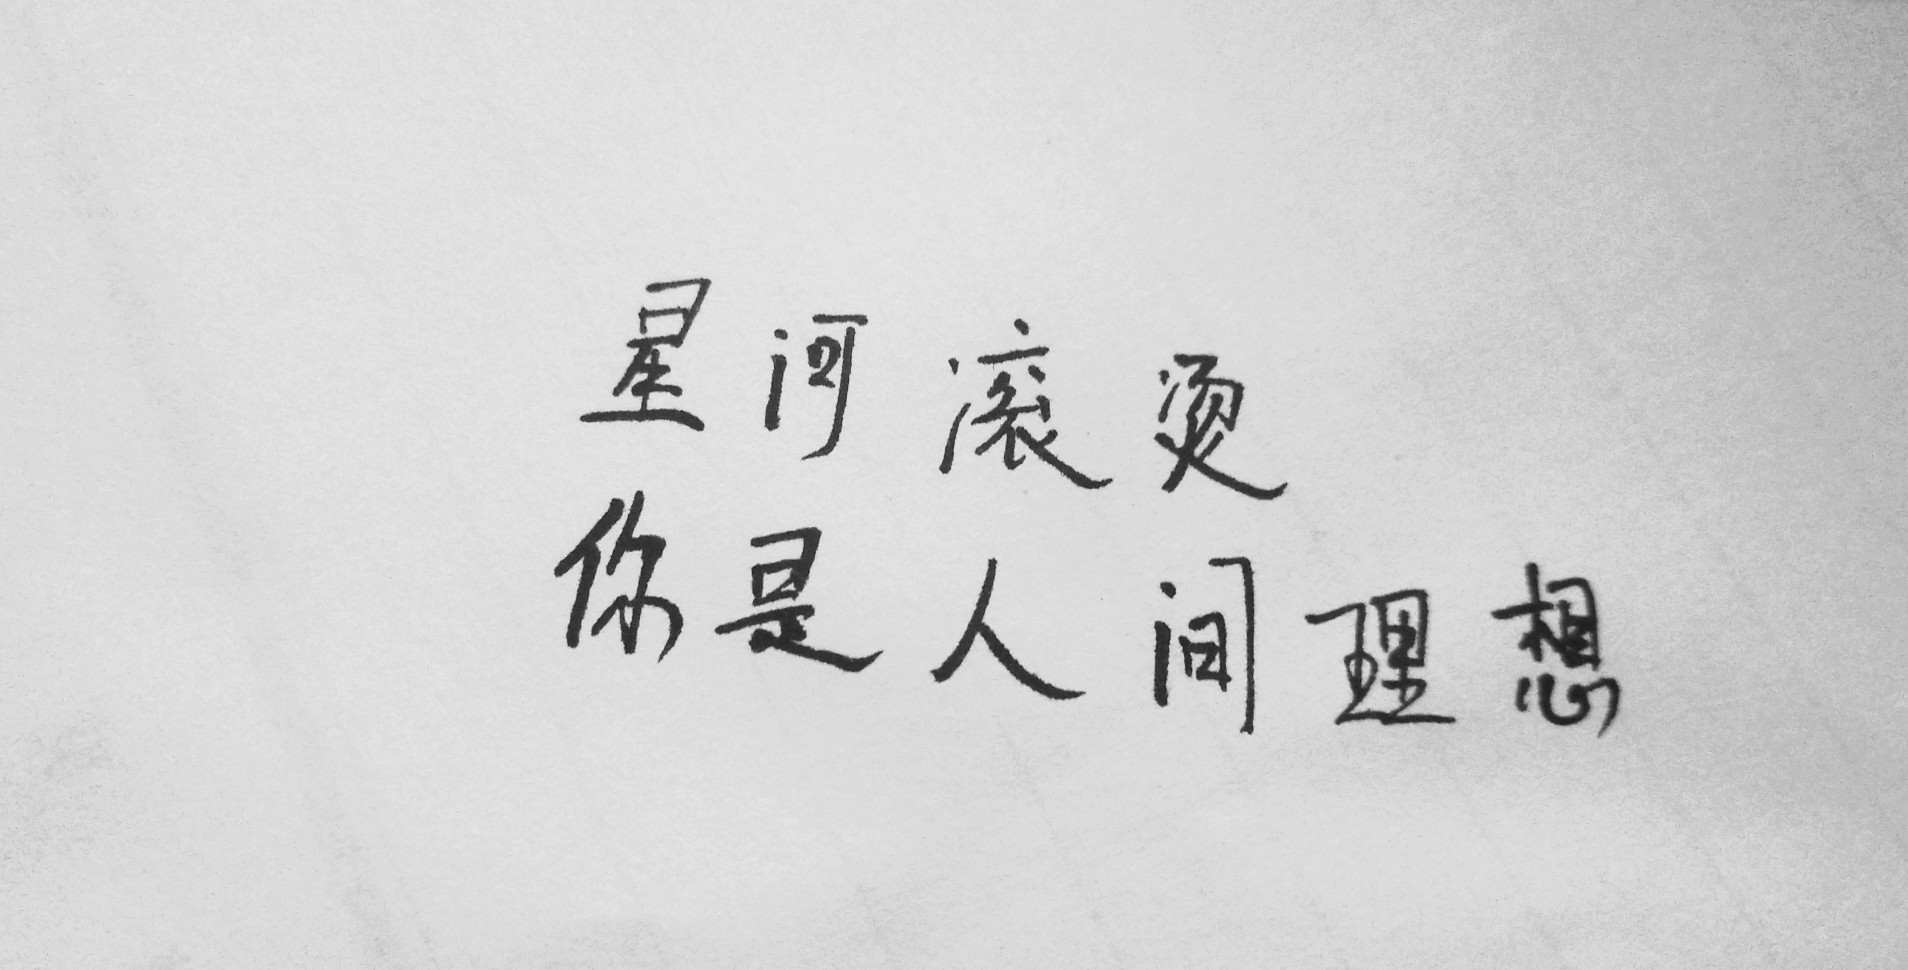 星河滚烫
你是人间理想